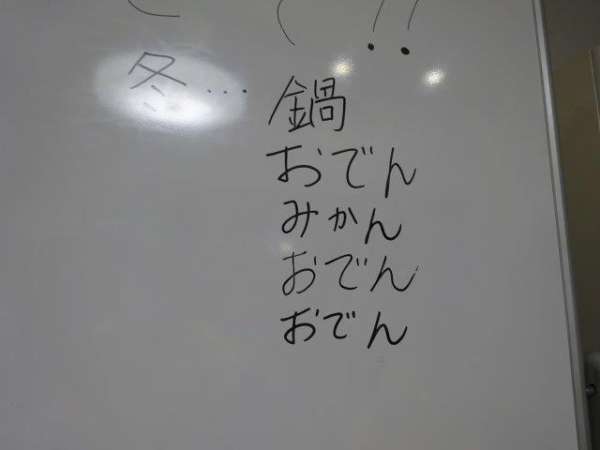 !!
冬… 鍋
おでん
みかん
おでん
おでん